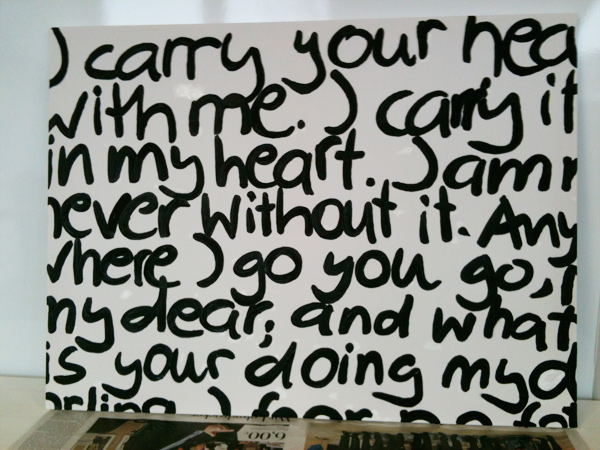 I carry your hea
with me. I carry it
in my heart. I am n
never without it. Any
where I go you go, m
my dear; and what
is your doing my d
arling. I fear no fat
6.00.